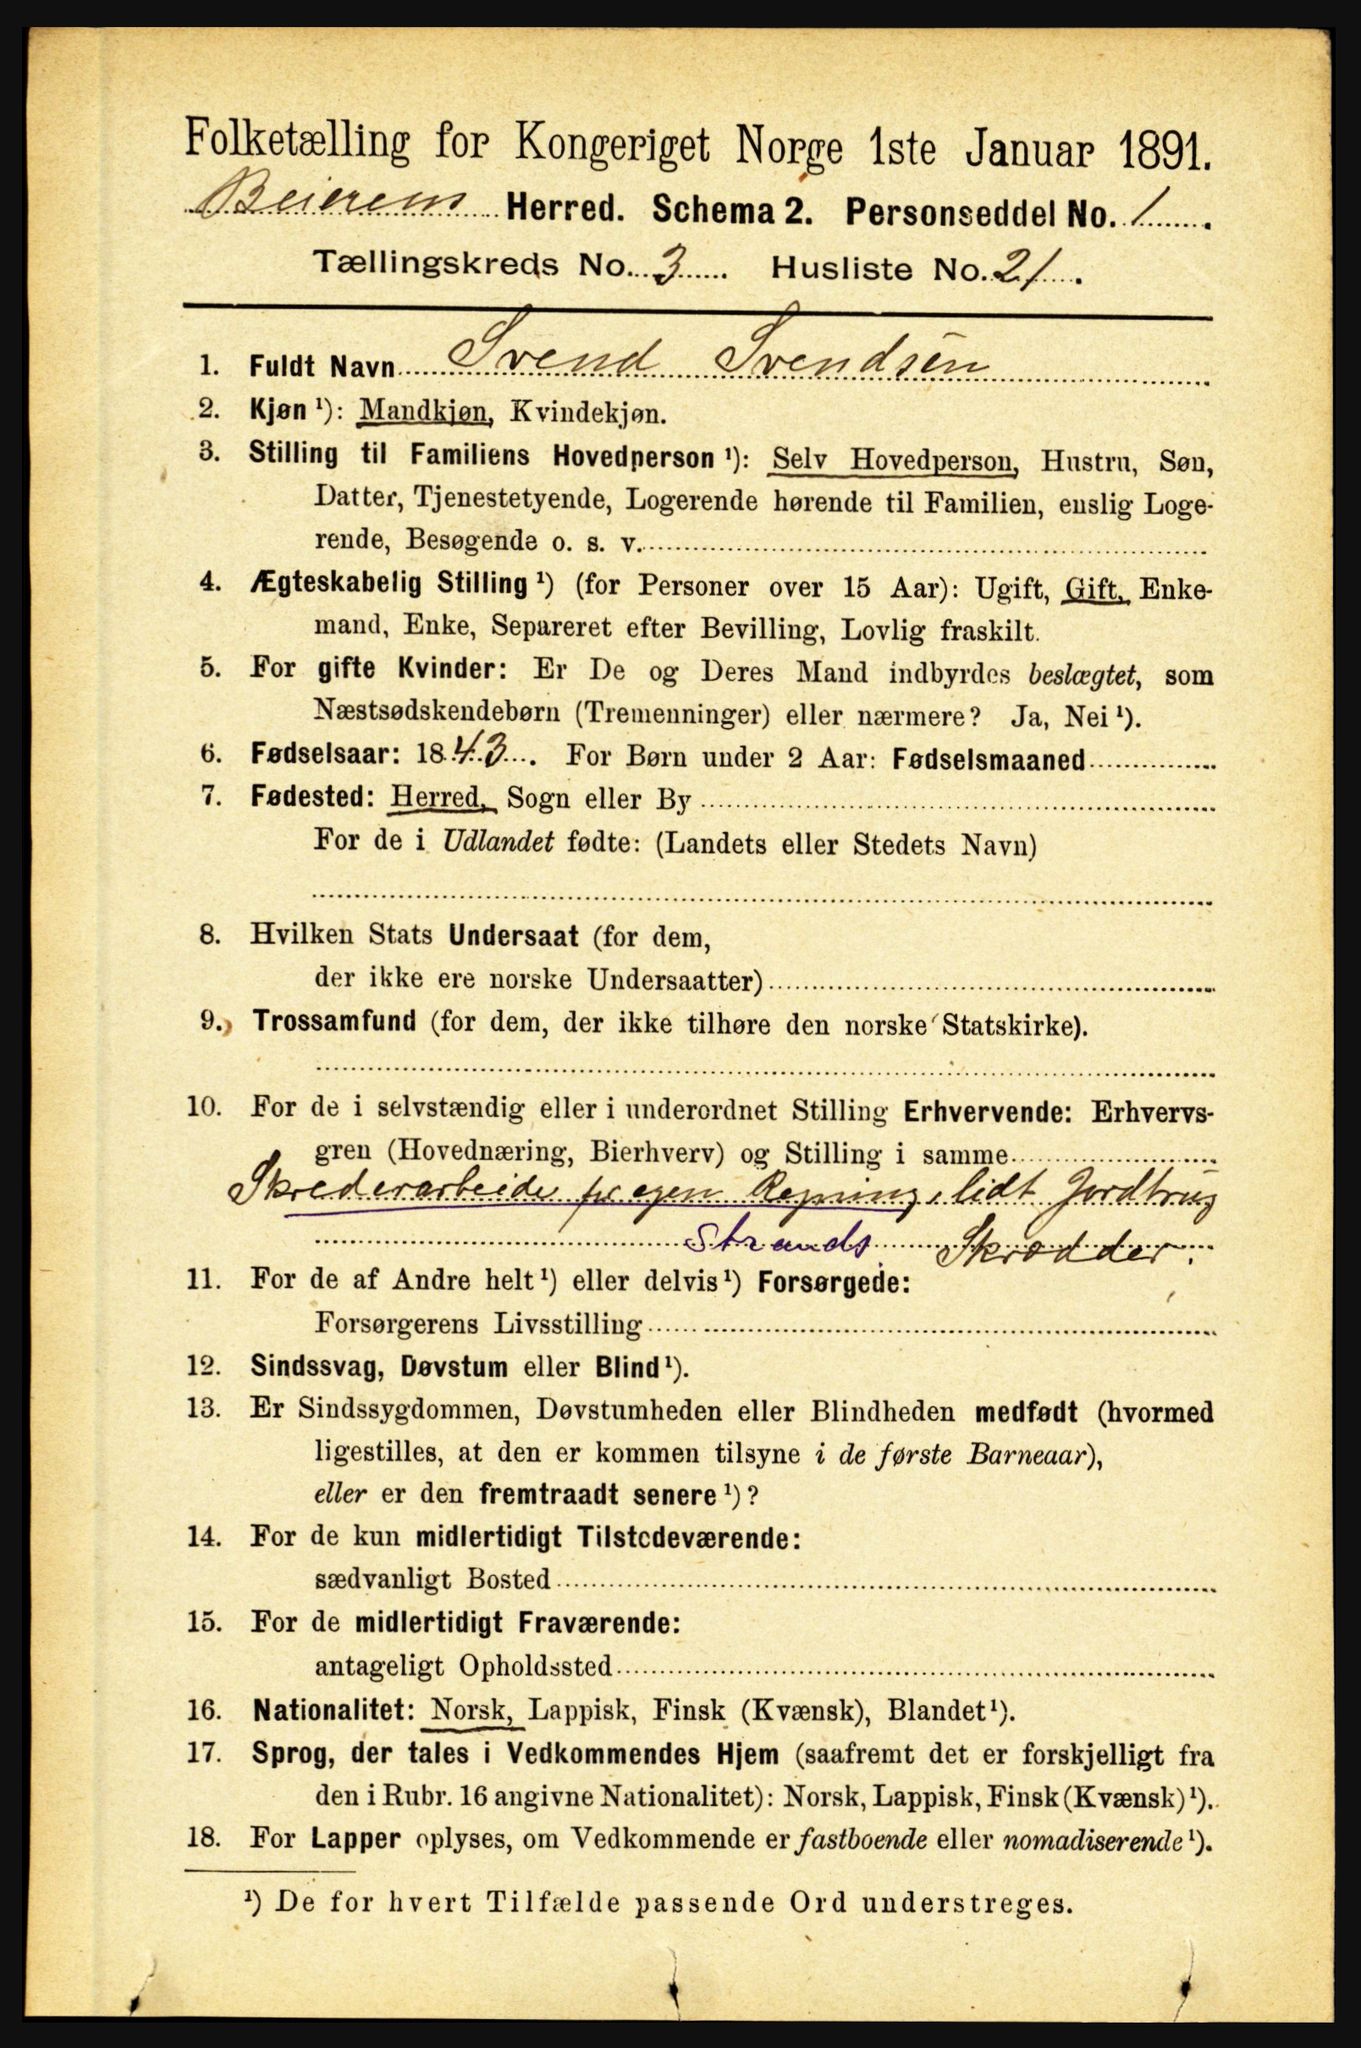 Folketælling for Kongeriget Norge 1ste Januar 1891.
Beierens Herred. Schema 2. Personseddel No. 1.
Tællingskreds No. 3. Husliste No. 21.
1. Fuldt Navn Svend Svendsen
2. Kjøn ¹): Mandkjøn, Kvindekjøn.
3. Stilling til Familiens Hovedperson ¹): Selv Hovedperson, Hustru, Søn,
Datter, Tjenestetyende, Logerende hørende til Familien, enslig Loge-
rende, Besøgende o. s. v.
4. Ægteskabelig Stilling ¹) (for Personer over 15 Aar): Ugift, Gift, Enke-
mand, Enke, Separeret efter Bevilling, Lovlig fraskilt.
5. For gifte Kvinder: Er De og Deres Mand indbyrdes beslægtet, som
Næstsødskendebørn (Tremenninger) eller nærmere? Ja, Nei ¹).
6. Fødselsaar: 1843. For Børn under 2 Aar: Fødselsmaaned
7. Fødested: Herred, Sogn eller By
For de i Udlandet fødte: (Landets eller Stedets Navn)
8. Hvilken Stats Undersaat (for dem,
der ikke ere norske Undersaatter)
9. Trossamfund (for dem, der ikke tilhøre den norske Statskirke).
10. For de i selvstændig eller i underordnet Stilling Erhvervende: Erhvervs-
gren (Hovednæring, Bierhverv) og Stilling i samme
Skrederarbeide for egen Regning, lidt Jordbrug
Strands. Skrædder.
11. For de af Andre helt ¹) eller delvis ¹) Forsørgede:
Forsørgerens Livsstilling
12. Sindssvag, Døvstum eller Blind ¹).
13. Er Sindssygdommen, Døvstumheden eller Blindheden medfødt (hvormed
ligestilles, at den er kommen tilsyne i de første Barneaar),
eller er den fremtraadt senere ¹)?
14. For de kun midlertidigt Tilstedeværende:
sædvanligt Bosted
15. For de midlertidigt Fraværende:
antageligt Opholdssted
16. Nationalitet: Norsk, Lappisk, Finsk (Kvænsk), Blandet ¹).
17. Sprog, der tales i Vedkommendes Hjem (saafremt det er forskjelligt fra
den i Rubr. 16 angivne Nationalitet): Norsk, Lappisk, Finsk (Kvænsk) ¹).
18. For Lapper oplyses, om Vedkommende er fastboende eller nomadiserende ¹).
¹) De for hvert Tilfælde passende Ord understreges.